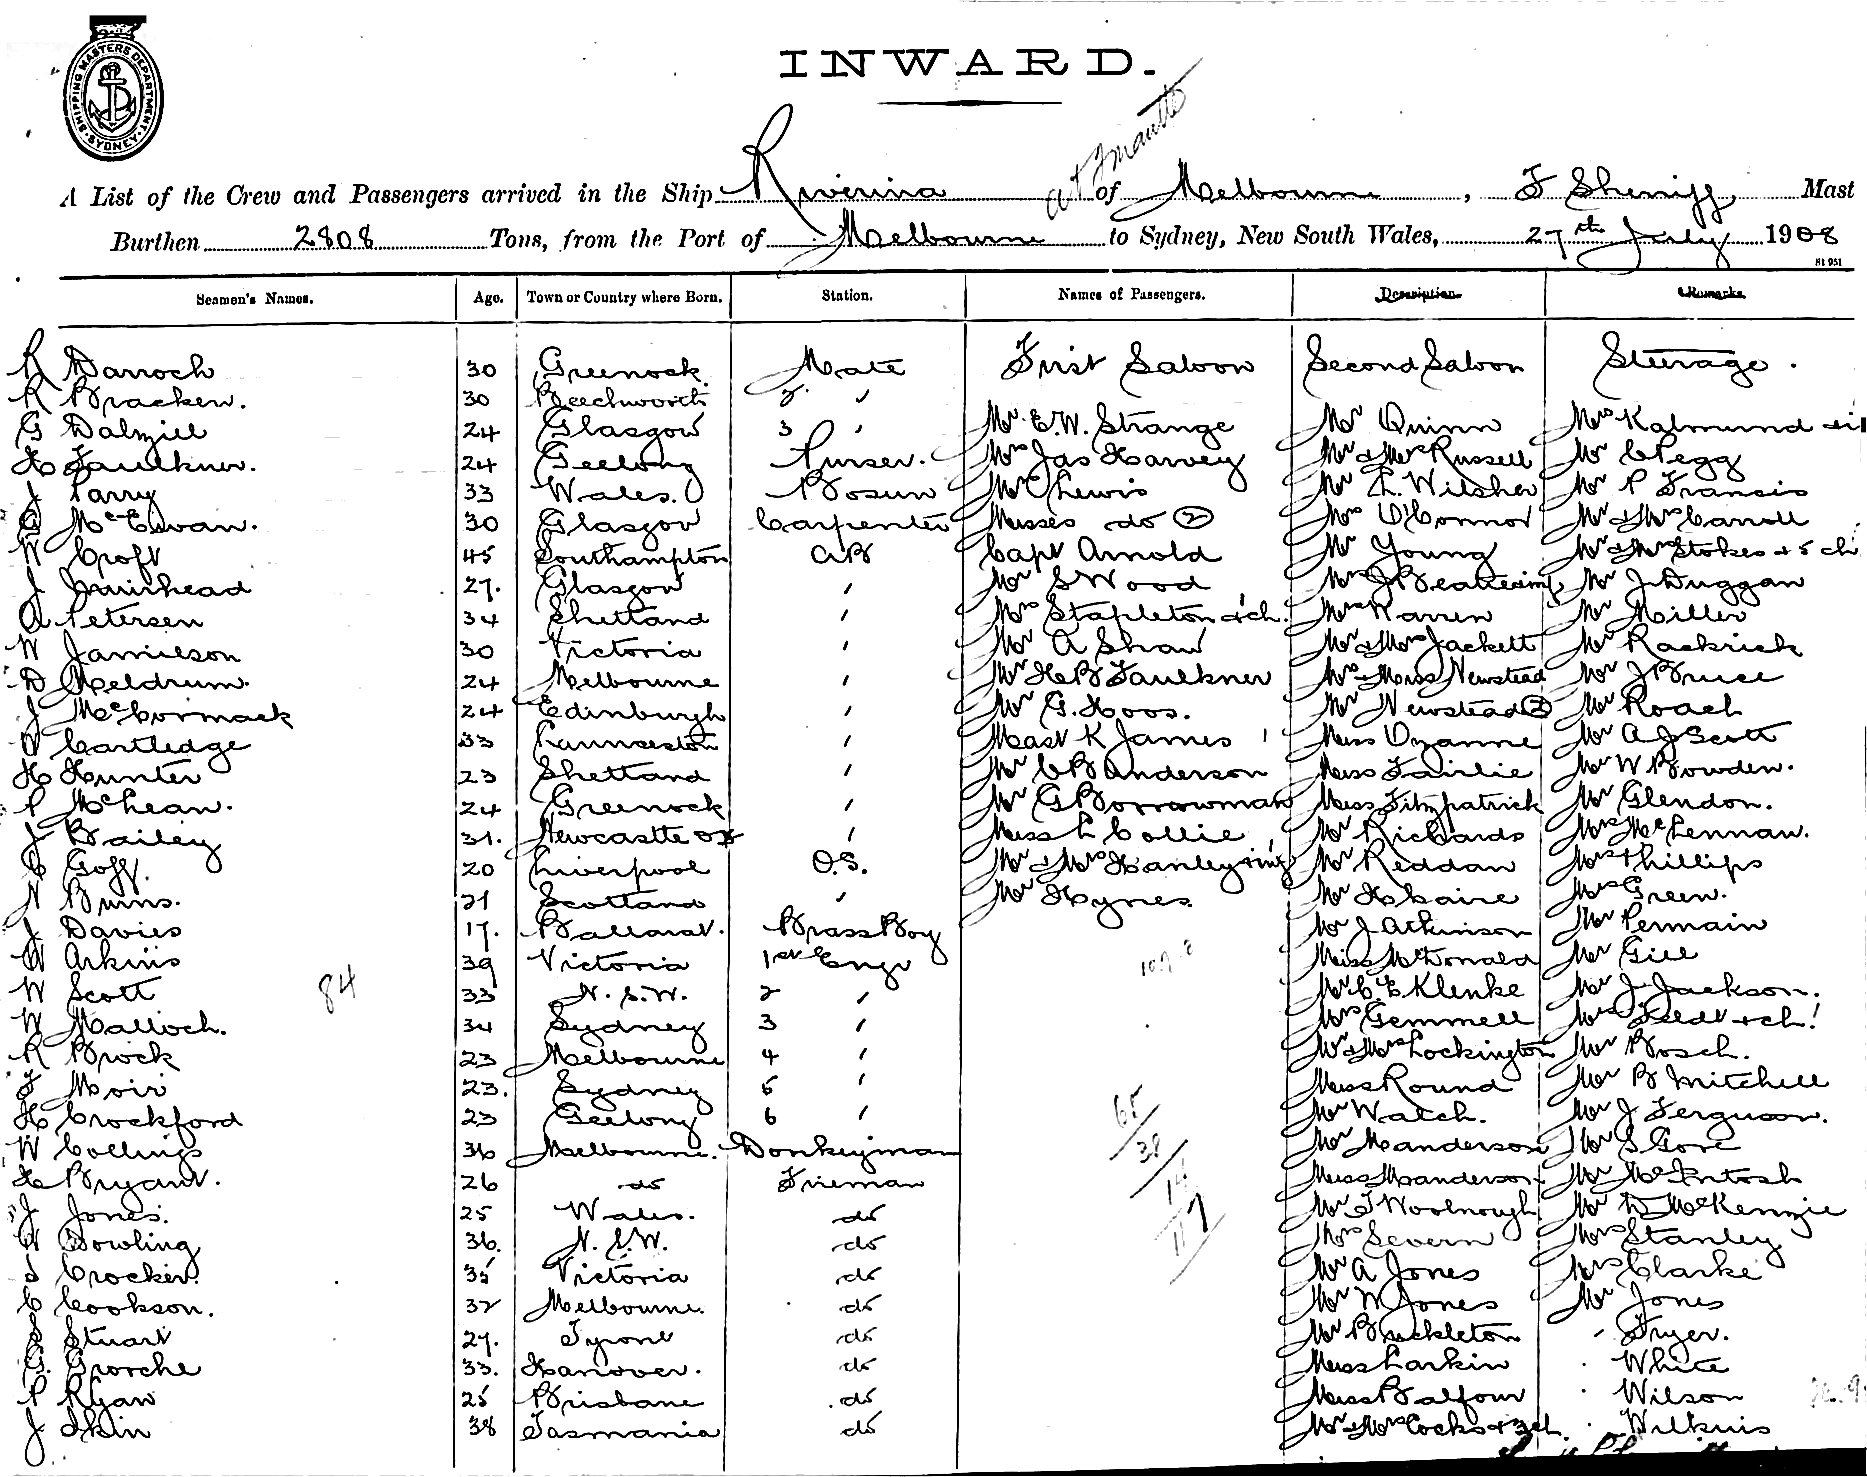 SHIPPING MASTERS DEPARTMENT. SYDNEY
INWARD.
A List of the Crew and Passengers arrived in the Ship Riverina of Melbourne, F Sherriff Mast
Burthen 2808 Tons, from the Port of Melbourne to Sydney, New South Wales, 27th July 1908
Seamen's Names. Age. Town or Country where Born. Station. Names of Passengers. Description. Remarks.
R Darroch 30 Greenock Mate First Saloon Second Saloon Steerage.
R Bracken. 30 Beechworth 2 "
G Dalziell 24 Glasgow 3 " Mr E.W. Strange Mr Quinn Mrs Kalmund
H Faulkner. 24 Geelong Purser. Mrs Jas Harvey Mr & Mrs Russell Mr C Pegg
J Parry 33 Wales. Bosun Mrs Lewis Mr L. Wilsher Mr P Francis
G McEwan. 30 Glasgow Carpenter Misses do 2 Mrs O'Connor Mr & Mrs Carroll
W Croft 45 Southampton AB Capt Arnold Mr Young Mr & Mrs Stokes + 5 ch
J Muirhead 27. Glasgow " Mr S Wood Mr J Duggan
A Petersen 34 Shetland " Mrs Stapleton & ch. Mrs Warren Mr Miller
W Jamieson 30 Victoria " Mr A Shaw Mr & Mrs Jackett Mr Rackrick
D Meldrum. 24 Melbourne " Mr H B Faulkner Mrs & Miss Newstead Mr J Bruce
J McCormack 24 Edinburgh " Mr G. Hoos. Mr Newstead 2 Mr Roach
Cartledge 33 Launceston " Mast K James Miss Ozanne Mr A J Scott
H Hunter 23 Shetland " Mr C B Anderson Miss Fairlie Mr W Bowden.
P McLean. 24 Greenock " Mr G Borrowman Miss Fitzpatrick Mr Glendon.
J Bailey 31. Newcastle " Miss L Collie Mr Richards Mrs McLennan.
C Goff. 20 Liverpool O.S. Mr & Mrs Hanley Mr Reddan Mrs Phillips
N Bruns. 21 Scotland " Mr Hynes Mr H Caire Mrs Green.
J Davies 17. Ballarat. Brass Boy Mr J Atkinson Mr Permain
W Arkins 39 Victoria 1st Engr Miss McDonald Mr Gill
W Scott 84 33 N.S.W. 2 " Mr C E Klenke Mr J. Jackson.
W Malloch. 34 Sydney 3 " Mrs Gemmell Mrs Feldt & ch.
R Brock 23 Melbourne 4 " Mr & Mrs Lockington Mr Bosch.
F Moir 23. Sydney 5 " Miss Round Mr B Mitchell
H Crockford 23 Geelong 6 " 65 Mr Watch. Mr J Ferguson.
W Collings 36 Melbourne. Donkeyman 38 Mr Manderson Mr S Gore
H Bryant. 26 do Fireman 14 Miss Manderson Mr McIntosh
J Jones. 25 Wales. do 117 Mr T Woolnough Mr D McKenzie
Dowling 36. N.S.W. do Mrs Severn Mrs Stanley
Crocker. 35 Victoria do Mr A Jones Mrs Clarke
C Cookson. 32 Melbourne. do Mr W Jones Mr Jones
S Stuart 27. Tyrone do Mr Buckleton " Fryer.
G. Grorche 33. Hanover. do Miss Larkin " White
P Ryan 25 Brisbane do Miss Balfour " Wilson
J Skin 38 Tasmania do Mr & Mrs Cocks & 3 ch. " Wilkins